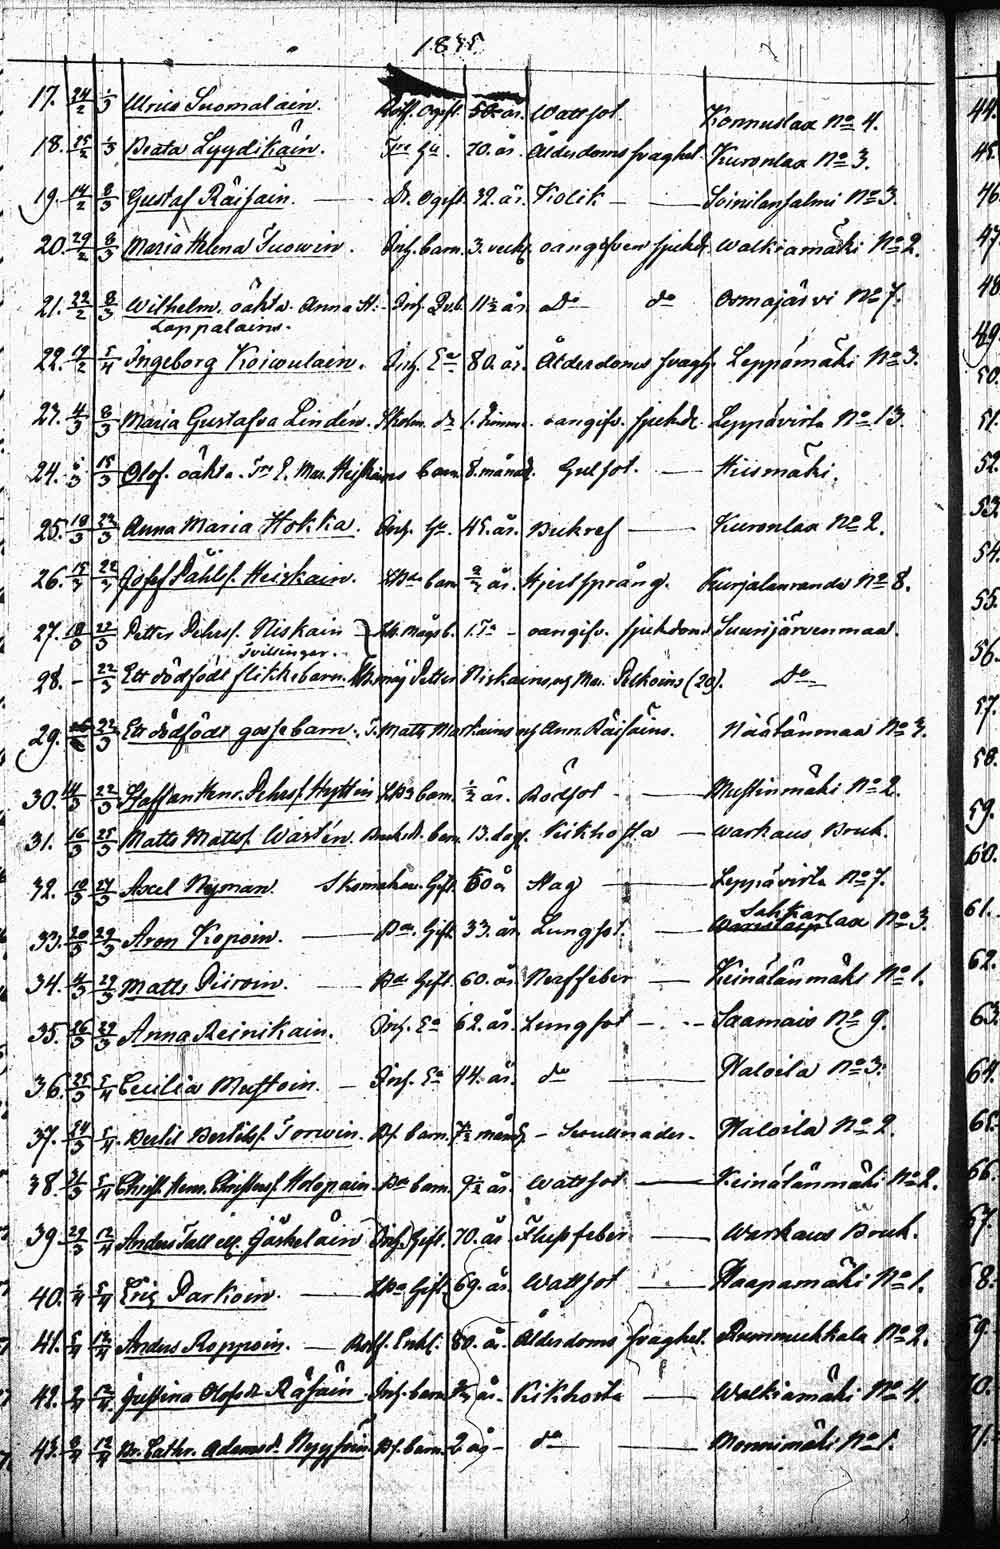 1855
17. 24/2 1/3 Ulrica Suomalain. Rotf. Ogift. 50 år. Wattsot. Konnuslax No 4.
18. 25/2 1/3 Beata Lyydikäin. Trs Ga. 70. år. Ålderdoms svaghet. Kuronlax No 3.
19. 14/2 8/3 Gustaf Räisain. — Dr. Ogift. 32. år. Kolik — Soinilansalmi No 3.
20. 29/2 8/3 Maria Helena Tuowin. Inh. barn. 3. veck. oangifven sjukd. Walkiamäki No 2.
21. 22/2 8/3 Wilhelm. oäkta. Anna H: Inh. 11 1/2 år. Do do Osmajärvi No 7.
Lappalains.
22. 19/2 5/4 Ingeborg Koiwulain. Inh. Ea. 80. år. Ålderdoms svagh. Leppämäki No 3.
23. 4/3 8/3 Maria Gustafva Lindén. Skolm. dr 1. Timme. oangifv. sjukd. Leppävirta No 13.
24. 6/3 15/3 Olof. oäkta. Trs E. Mar. Heiskains barn. 8. månad. Gulsot. — Hiismäki.
25. 19/3 22/3 Anna Maria Hokka. Inh. Ga. 45. år. Bukref — Kuronlax No 2.
26. 15/3 22/3 Josef Påhlss. Heiskain. barn år. Hjertsprång. Kurjalanranda No 8.
27. 18/3 22/3 Petter Pehrss. Niskain 1. Ta — oangifv. sjukdom Suurijärvenmaa
Tvillingar.
28. — 22/3 Ett dödfödt flickebarn. måg Petter Niskains och Mar. Pelkoins (20). Do
29. 22/3 Ett dödfödt gossebarn. T. Matts Markains och Ann. Räisäins. Näätänmaa No 3.
30. 14/3 22/3 Staffan Henr. Pehrss. Hyttin barn. 1/2 år. Rödsot — Mustinmäki No 2.
31. 16/3 25/3 Matts Matss. Wästén. Bruksdr. barn. 13. dag. Kikhosta — Warkaus Bruk.
32. 18/3 27/3 Axel Nyman. Skomakare. Gift. 50 å Slag — Leppävirta No 7.
33. 20/3 29/3 Aron Kopoin. — Ba. Gift. 33. år. Lungsot. — Sahkarlax No 3.
34. 4/3 29/3 Matts Piiroin. — Ba Gift. 60. år. Nerffeber — Keinälänmäki No 1.
35. 26/3 29/3 Anna Reinikain. Inh. Ea 62. år. Lungsot — Saamais No 9.
36. 25/3 5/4 Cecilia Mustoin. — Inh. Ea 44. år. do — Paloila No 3.
37. 24/3 5/4 Bertil Bertilss. Torwin. Bf. barn. 7 1/2 mån. — Paloila No 2.
38. 31/3 5/4 Christ. Henr. Christerss. Holopain Ba barn. 9 1/2 år. Wattsot — Keinälänmäki No 2.
39. 29/3 12/4 Anders Tall ell. Jäskeläin Inh. Gift. 70. år. Flussfeber — Warkaus Bruk.
40. 1/4 5/4 Eric Parkoin. — Gift. 69. år. Wattsot — Haapamäki No 1.
41. 5/4 12/4 Anders Roppoin. — Rotf. Enkl. 80. år. Ålderdoms svaghet. No 2.
42. 2/4 12/4 Justina Olofsdr. Räsäin. Inh. barn år. Kikhosta — Walkiamäki No 4.
43. 8/4 12/4 Br. Cathr. Adamsdr. Nyyssöin. Bf. barn. 2 år — do — Monnimäki No 1.
44.
45.
46.
47.
48
49.
50.
51.
52.
53.
54.
55.
56.
57.
58.
59.
60.
61.
62.
63.
64.
65.
66.